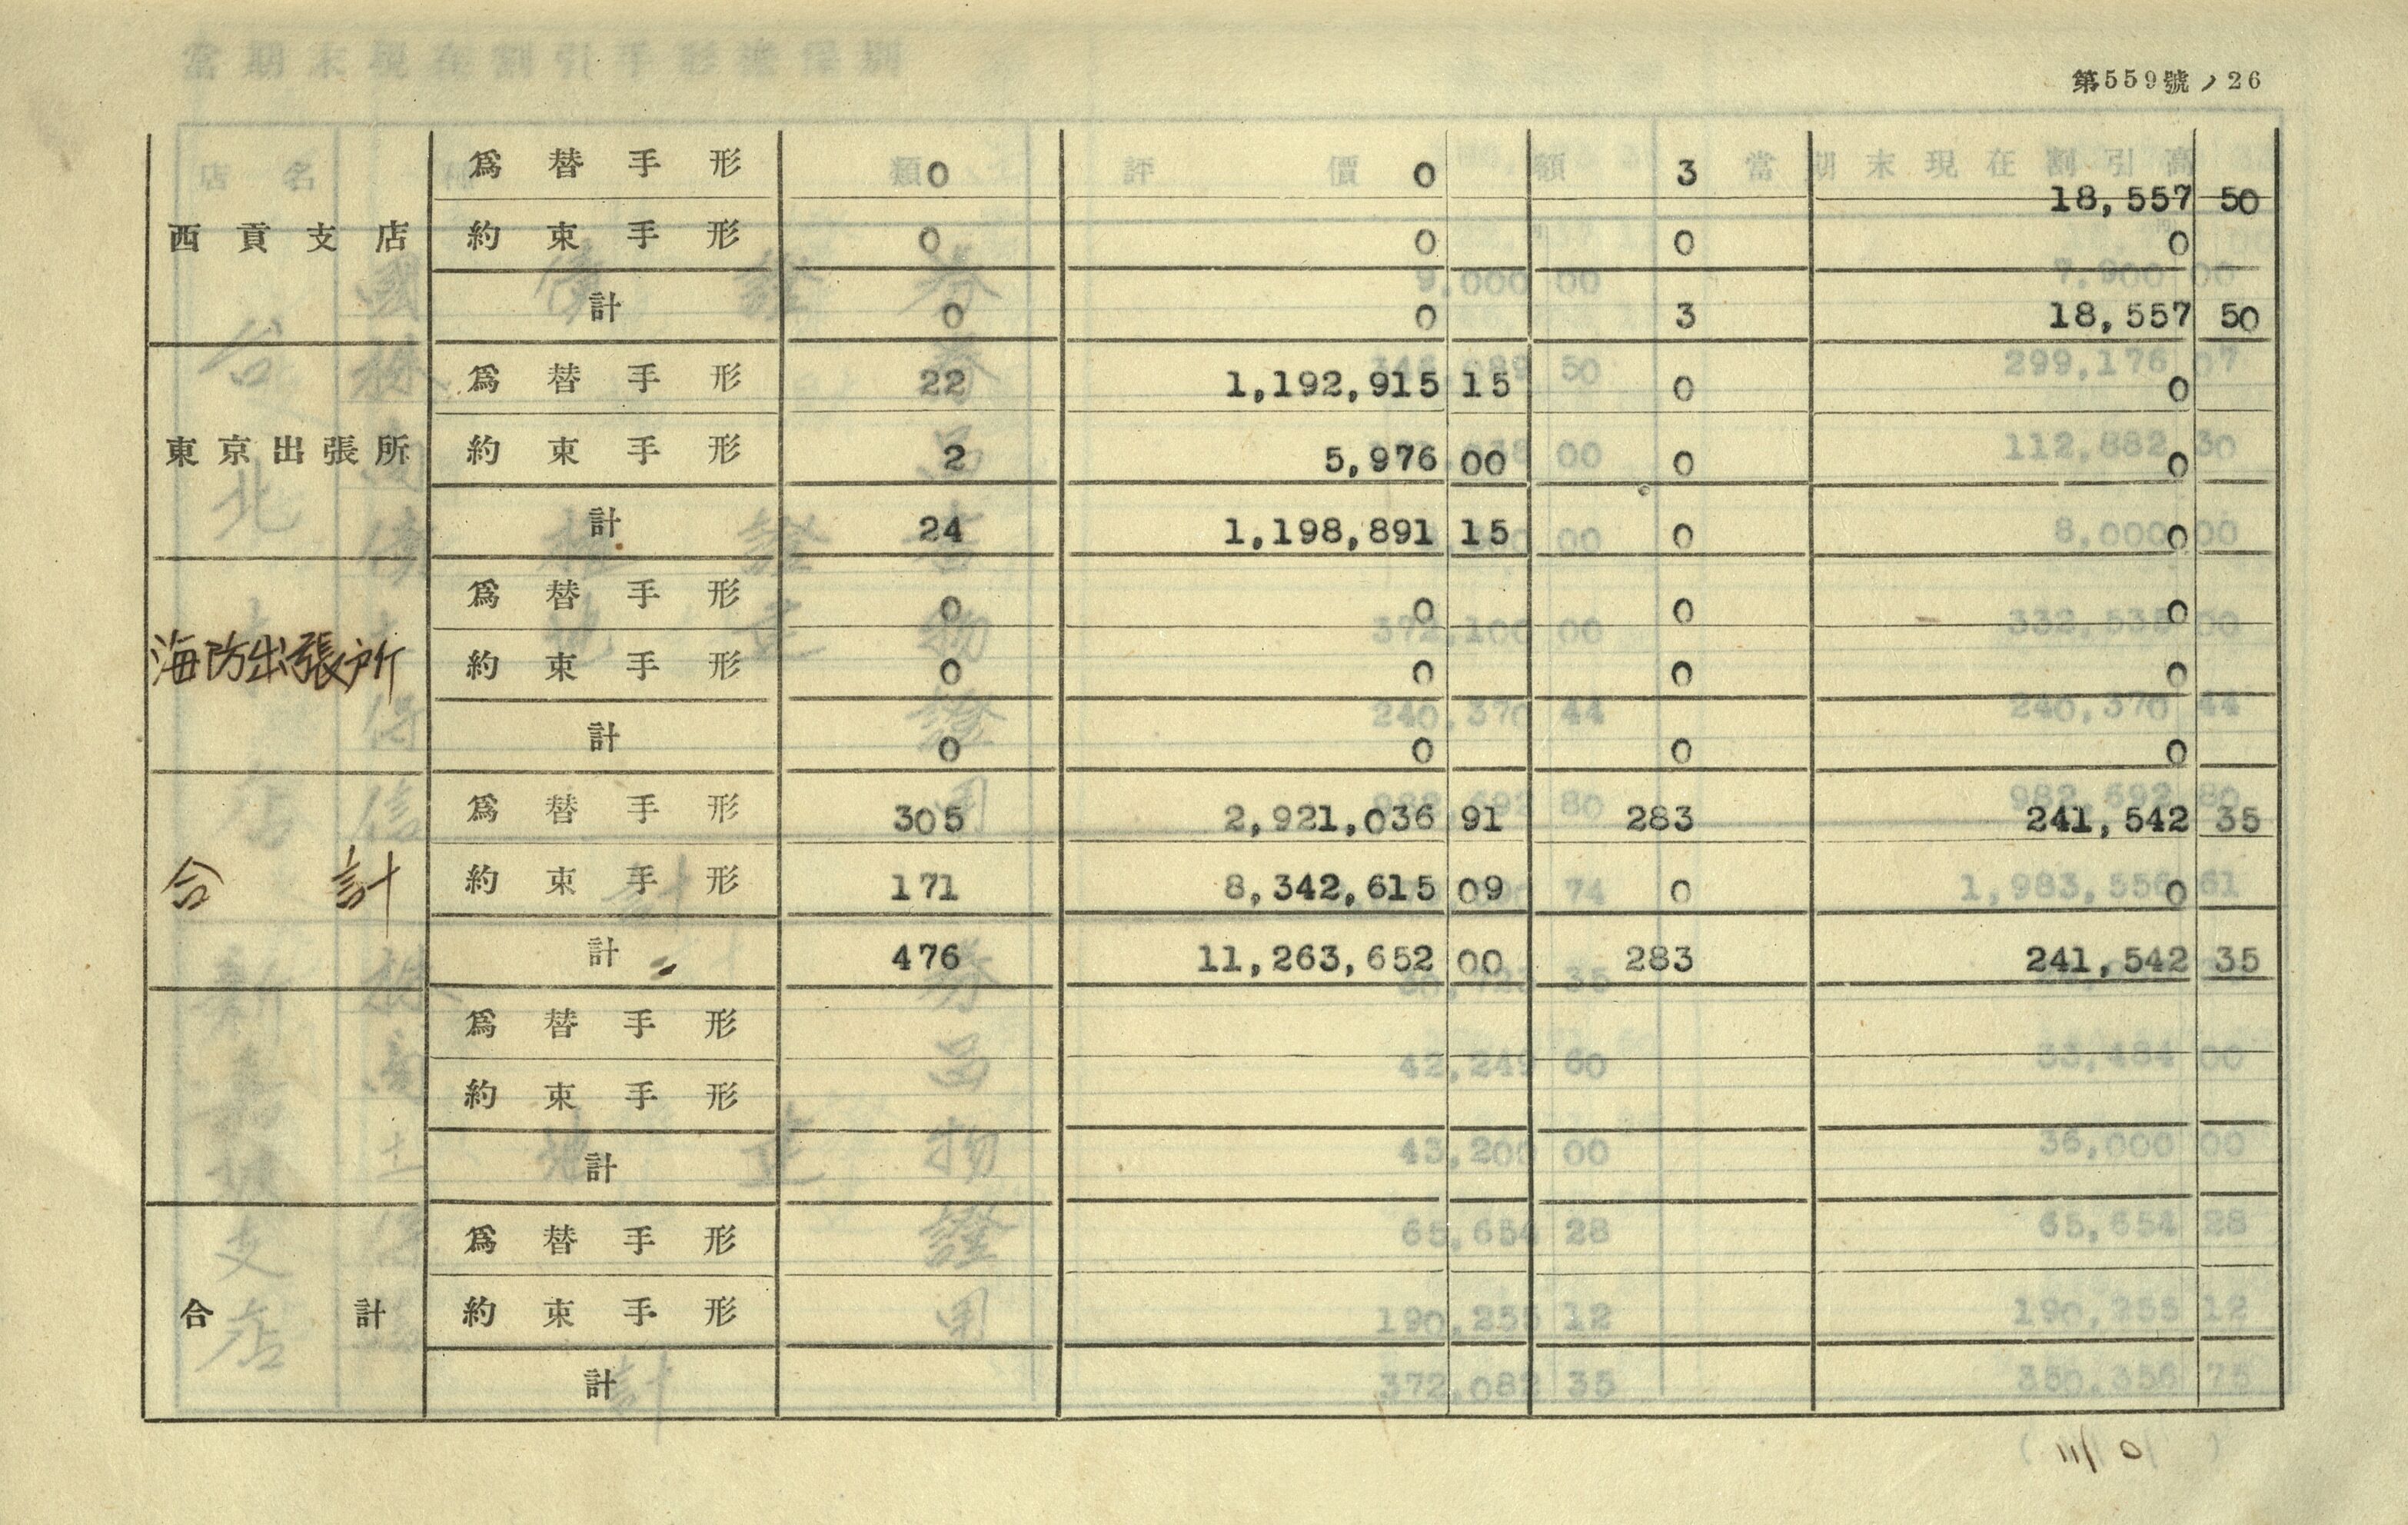 第559號ノ26
西貢支店 爲替手形 0 0 3 18,557 50
約束手形 0 0 0 0
計 0 0 3 18,557 50
東京出張所 爲替手形 22 1,192,915 15 0 0
約束手形 2 5,976 00 0 0
計 24 1,198,891 15 0 0
海防出張所 爲替手形 0 0 0 0
約束手形 0 0 0 0
計 0 0 0 0
合計 爲替手形 305 2,921,036 91 283 241,542 35
約束手形 171 8,342,615 09 0 0
計 476 11,263,652 00 283 241,542 35
爲替手形
約束手形
計
合計 爲替手形
約束手形
計